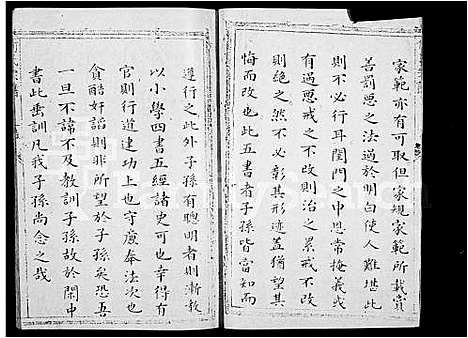 家範亦有可取但家規家範所載賞
善罰惡之法過於明白使人難堪此
則不必行耳閨門之中恩常掩義或
有過惡戒之不改則治之屡戒不改
則絕之然不必彰其形迹盖猶望其
悔而改也此五書者子孫皆當知而
遵行之此外子孫有聰明者則漸教
以小學四書五經諸史可也幸得有
官則行道建功上也守廉奉法次也
貪酷奸諂則非所望於子孫矣恐吾
一旦不諱不及教訓子孫故於閑中
書此垂訓凡我子孫尚念之哉